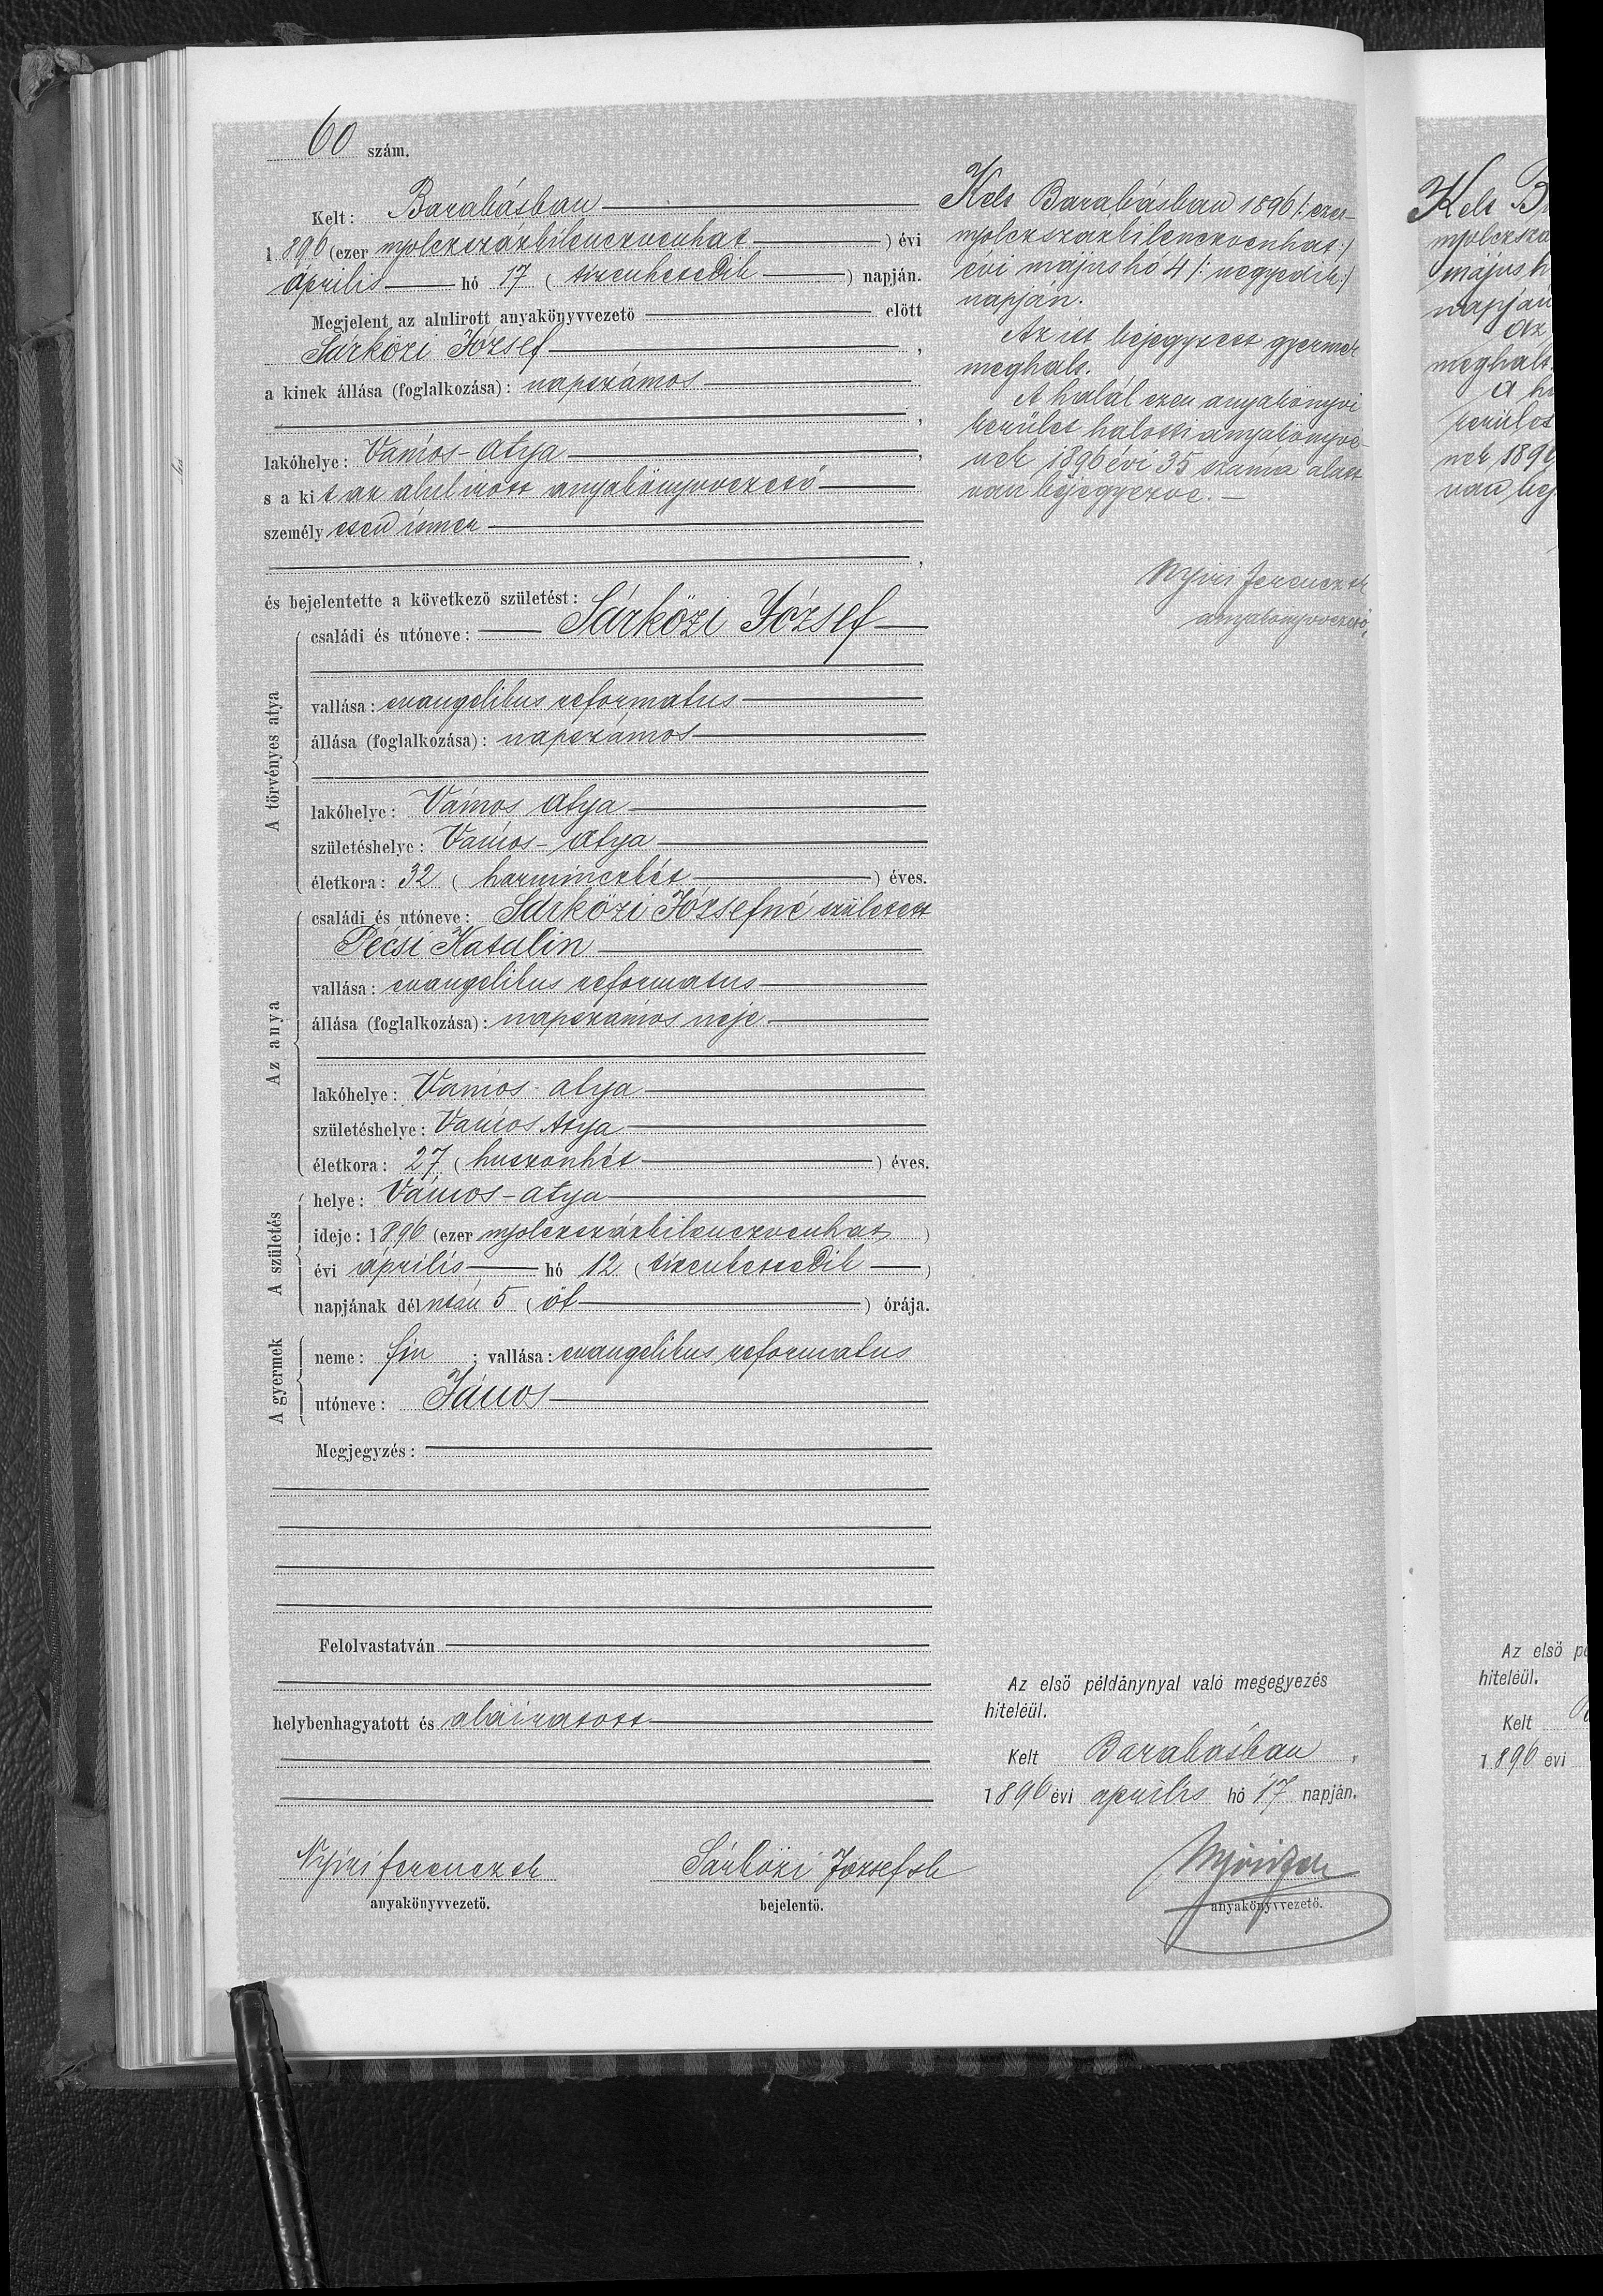 60 szám.
Kelt: Barabásban
1896 (ezer nyolczszázkilenczvenhat) évi
április hó 17 (tizenhetedik) napján.
Megjelent az alulirott anyakönyvvezető előtt
Sárközi József,
a kinek állása (foglalkozása): napszámos
,
lakóhelye: Vámos-Atya,
s a kit az alulirott anyakönyvvezető
személyesen ismer
,
és bejelentette a következő születést:
A törvényes atya
családi és utóneve: Sárközi József
vallása: evangelikus reformatus
állása (foglalkozása): napszámos
lakóhelye: Vámos Atya
születéshelye: Vámos-Atya
életkora: 32 (harminczkét) éves.
Az anya
családi és utóneve: Sárközi Józsefné született
Pécsi Katalin
vallása: evangelikus reformatus
állása (foglalkozása): napszámos neje
lakóhelye: Vámos-atya
születéshelye: Vámos Atya
életkora: 27 (huszonhét) éves.
A születés
helye: Vámos-atya
ideje: 1896 (ezer nyolczszázkilenczvenhat)
évi április hó 12 (tizenkettedik)
napjának délután 5 (öt) órája.
A gyermek
neme: fiu; vallása: evangelikus reformatus
utóneve: János
Megjegyzés:
Felolvastatván
helybenhagyatott és aláiratott
Nyiri Ferencz sk
anyakönyvvezető.
Sárközi József sk
bejelentő.
Kelt Barabásban 1896 /: ezer-
nyolczszazkilenczvenhat:/
évi május hó 4 /: negyedik:/
napján.
Az itt bejegyzett gyermek
meghalt.
A halál ezen anyakönyvi
kerület halotti anyakönyvé-
nek 1896 évi 35 száma alatt
van bejegyezve.
Nyiri Ferencz sk
anyakönyvvezető,
Az első példánynyal való megegyezés
hiteléül.
Kelt Barabásban,
1896 évi április hó 17 napján.
Nyiri
anyakönyvvezető.
Kelt
május h
napján
Az
meghalt.
A h
kerület
van bej
Az első
hiteléül.
Kelt
1896 évi